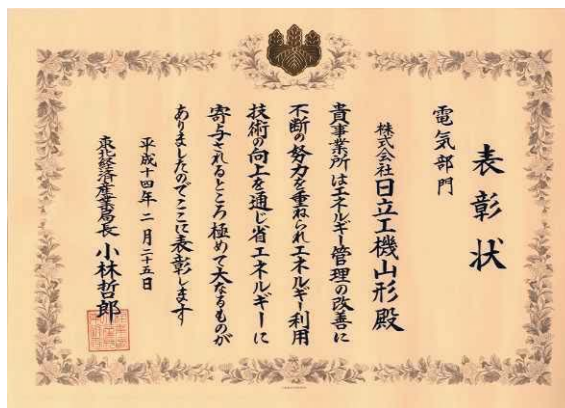 表彰状
電気部門
株式会社日立工機山形殿
貴事業所はエネルギー管理の改善に
不断の努力を重ねられエネルギー利用
技術の向上を通じ省エネルギーに
寄与されるところ極めて大なるものが
ありましたのでここに表彰します
平成十四年二月二十五日
東北経済産業局長 小林哲郎